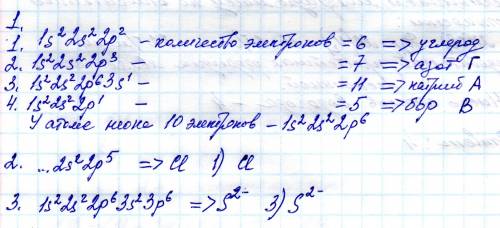 1.
1. 1s²2s²2p² - количество электронов = 6 => углерод
2. 1s²2s²2p³ - = 7 => азот Г
3. 1s²2s²2p⁶3s¹ - = 11 => натрий А
4. 1s²2s²2p¹ - = 5 => бор В
У атома неона 10 электронов - 1s²2s²2p⁶
2. ...2s²2p⁵ => Cl 1) Cl
3. 1s²2s²2p⁶3s²3p⁶ => S²⁻ 3) S²⁻